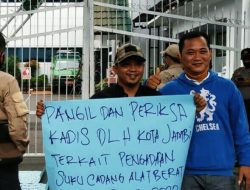 PANGIL DAN PERIKSA
KADIS DLH KOTA JAMBI
TERKAIT PENGADAAN
SUKU CADANG ALAT BERAT
CHELSEA